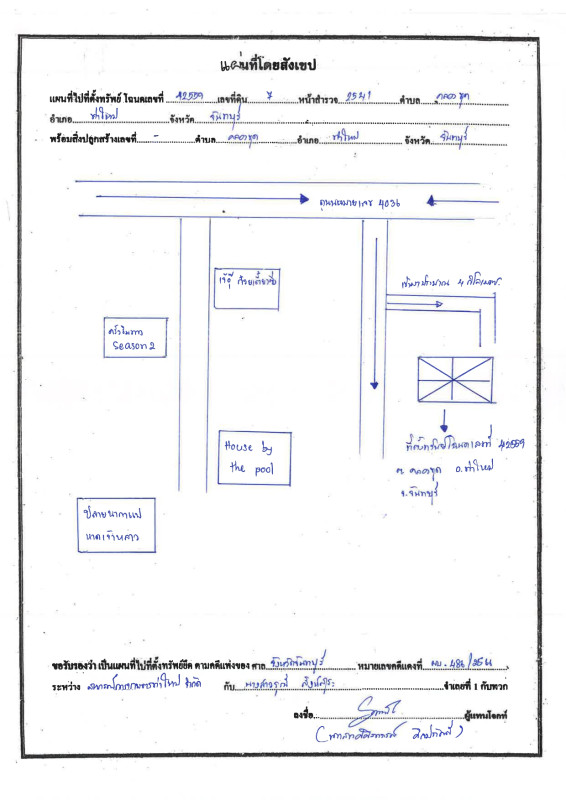 แผนที่โดยสังเขป
แผนที่ไปที่ตั้งทรัพย์ โฉนดเลขที่ 42559 เลขที่ดิน 7 หน้าสำรวจ 2541 ตำบล คลองขุด
อำเภอ ท่าใหม่ จังหวัด จันทบุรี
พร้อมสิ่งปลูกสร้างเลขที่ - ตำบล คลองขุด อำเภอ ท่าใหม่ จังหวัด จันทบุรี
ถนนหมายเลข 4036
เจ๊ตุ๊ ก๋วยเตี๋ยวเรือ
เข้ามาประมาณ 4 กิโลเมตร
ครัวริมทาง
Season 2
House by
the pool
ที่ตั้งทรัพย์โฉนดเลขที่ 42559
ต. คลองขุด อ.ท่าใหม่
จ.จันทบุรี
หาดเจ้าหลาว
ขอรับรองว่า เป็นแผนที่ไปที่ตั้งทรัพย์ยึด ตามคดีแพ่งของ ศาล จังหวัดจันทบุรี หมายเลขคดีแดงที่ ผบ. 486/25
ระหว่าง สหกรณ์การเกษตรท่าใหม่ จำกัด กับ นางสาว จำเลยที่ 1 กับพวก
ลงชื่อ ผู้แทนโจทก์